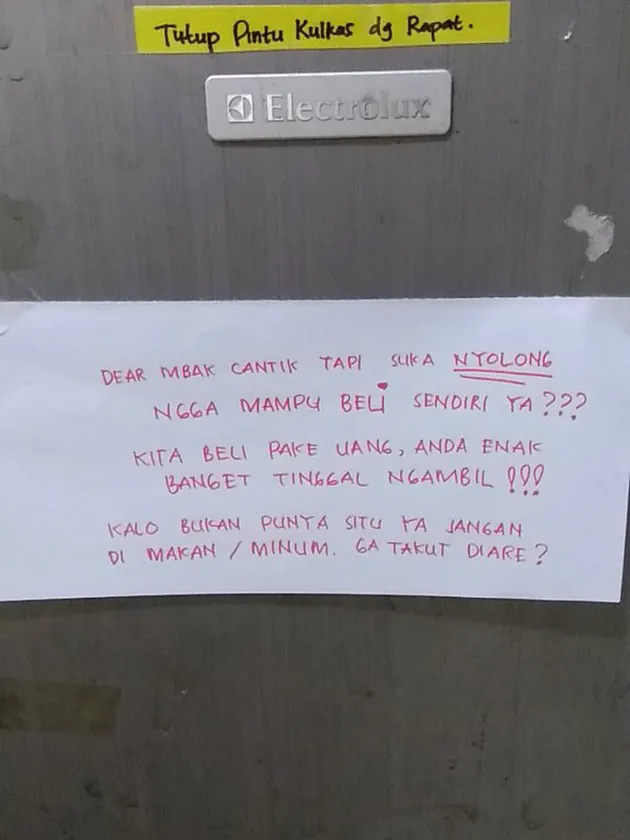 Tutup Pintu Kulkas dg Rapat.
Electrolux
DEAR MBAK CANTIK TAPI SUKA NYOLONG
NGGA MAMPU BELI SENDIRI YA???
KITA BELI PAKE UANG, ANDA ENAK
BANGET TINGGAL NGAMBIL !!!
KALO BUKAN PUNYA SITU YA JANGAN
DI MAKAN / MINUM. GA TAKUT DIARE?